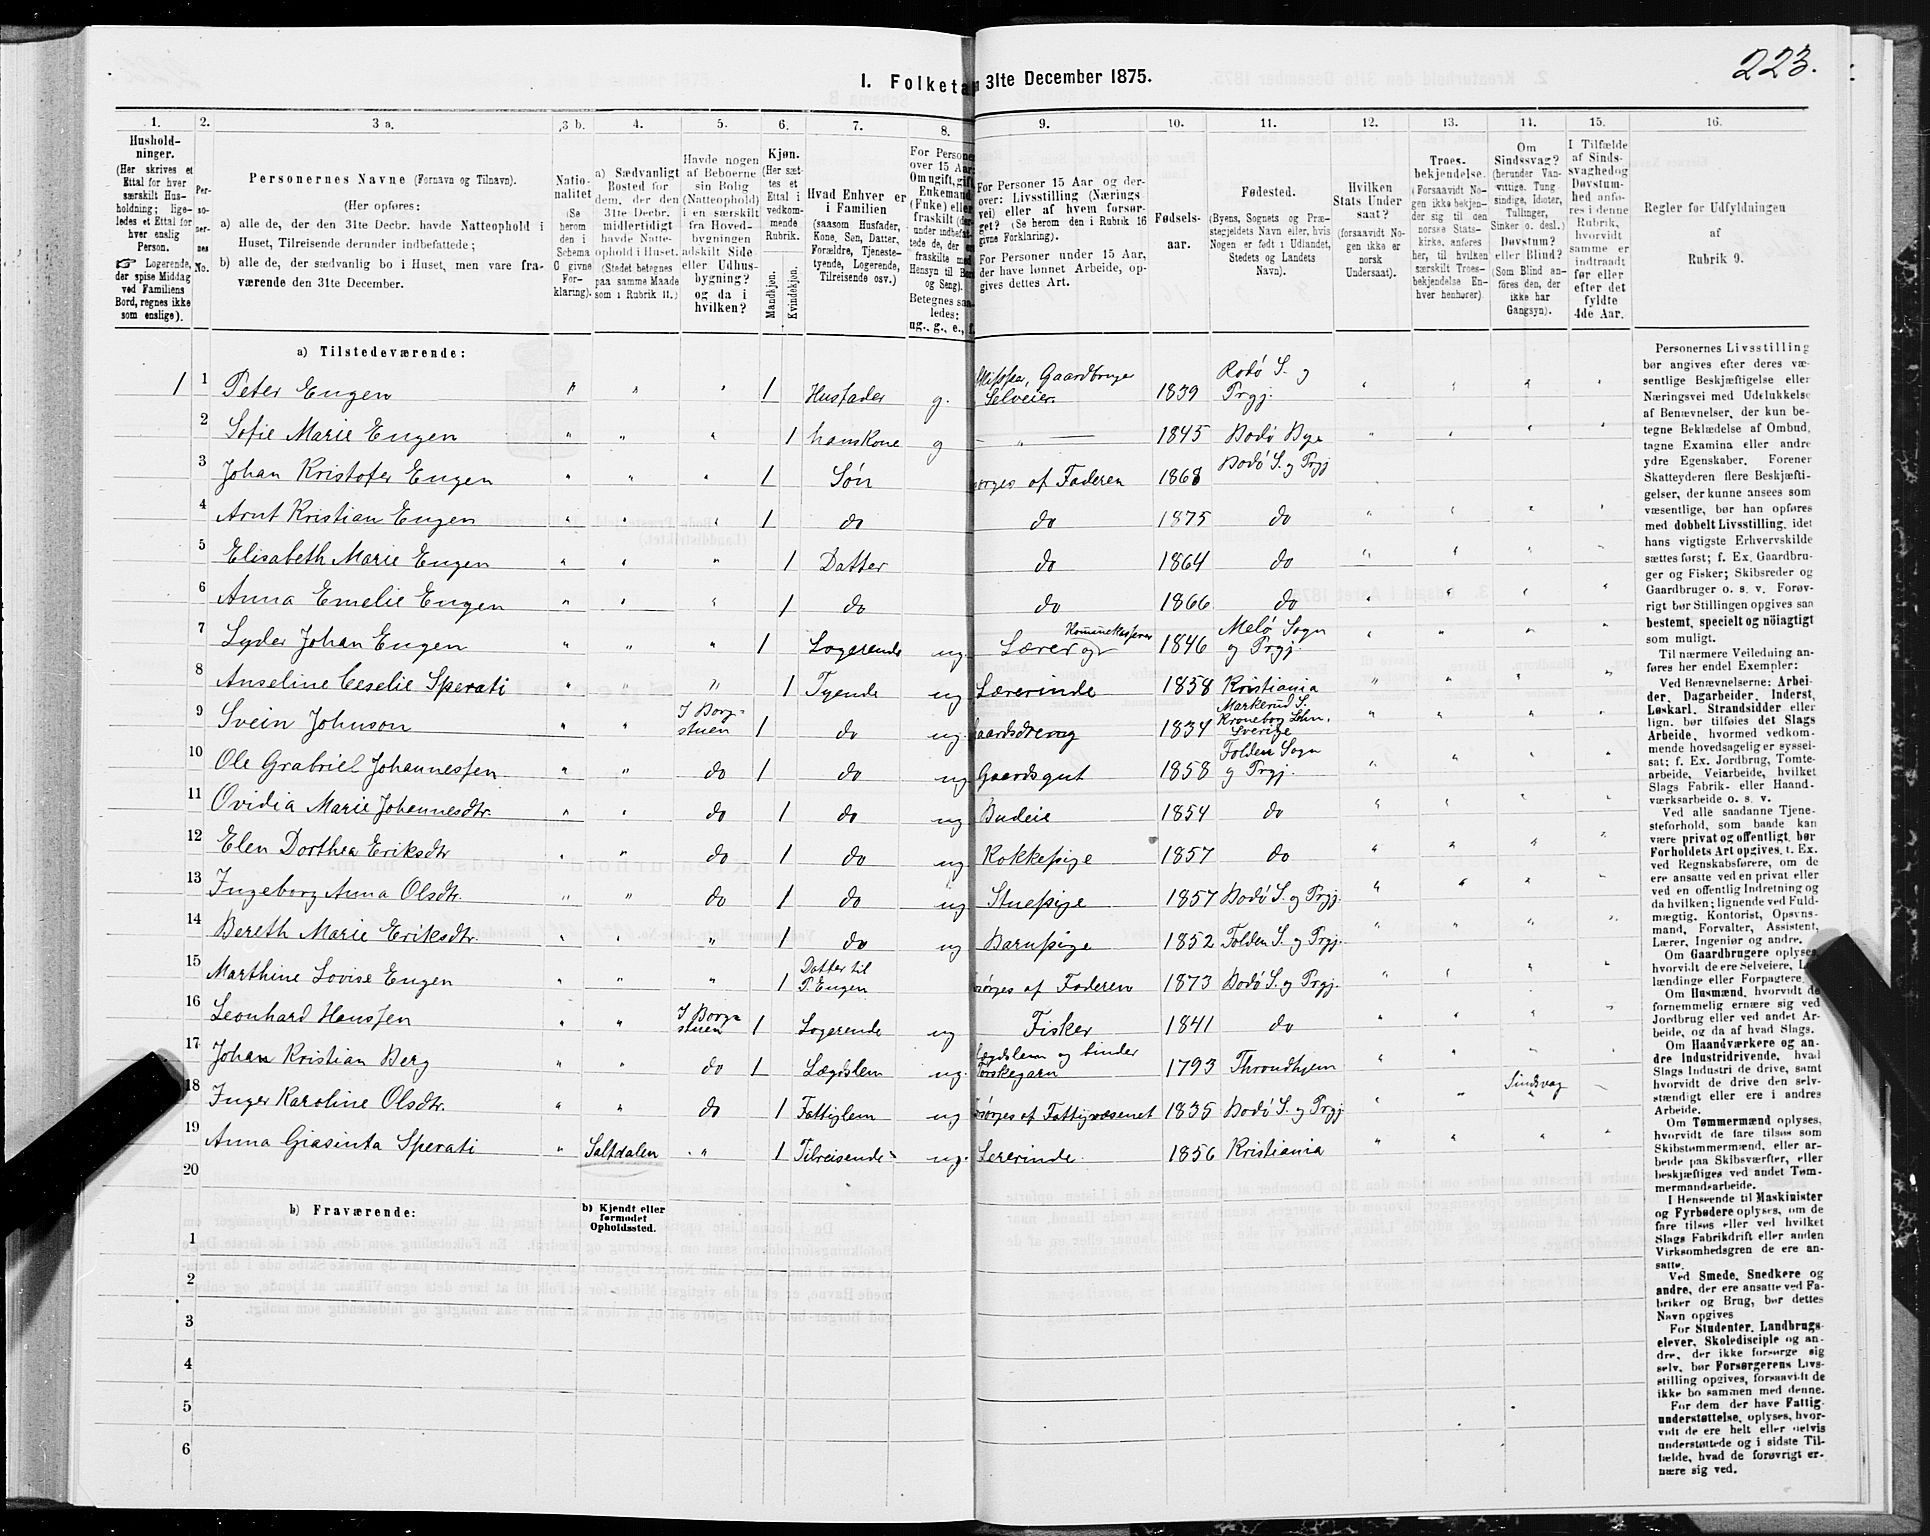 223.
I. Folketa 31te December 1875.
1. 2. 3 a. 3 b. 4. 5. 6. 7. 8. 9. 10. 11. 12. 13. 14. 15. 16.
Hushold-
ninger.
(Her skrives et
Ettal for hver
særskilt Hus-
holdning; lige-
ledes et Ettal for
hver enslig
Person.
☞ Logerende,
der spise Middag
ved Familiens
Bord, regnes ikke
som enslige).
Per-
so-
ner-
nes
No.
Personernes Navne (Fornavn og Tilnavn).
(Her opføres:
a) alle de, der den 31te Decbr. havde Natteophold i
Huset, Tilreisende derunder indbefattede;
b) alle de, der sædvanlig bo i Huset, men vare fra-
værende den 31te December.
Natio-
nalitet
(Se
herom
den i
Schema
C givne
For-
klaring).
a) Sædvanligt
Bosted for
dem, der den
31te Decbr.
midlertidigt
havde Natte-
ophold i Huset.
(Stedet betegnes
paa samme Maade
som i Rubrik 11.)
Havde nogen
af Beboerne
sin Bolig
(Natteophold)
i en særskilt
fra Hoved-
bygningen
adskilt Side
eller Udhus-
bygning?
og da i
hvilken?
Kjøn.
(Her sæt-
tes et
Ettal i
vedkom-
mende
Rubrik.
Mandkjøn.
Kvindekjøn.
Hvad Enhver er
i Familien
(saasom Husfader,
Kone, Søn, Datter,
Forældre, Tjeneste-
tyende, Logerende,
Tilreisende osv.)
For Persone
over 15 Aar
Om ugift, gift
Enkemand
(Enke) eller
fraskilt (der
under indbefat-
tede de, der er
fraskilte med
Hensyn til Bo
og Seng).
Betegnes saa
ledes:
ug., g., e., f.
For Personer 15 Aar og der-
over: Livsstilling (Nærings
vei) eller af hvem forsør-
get? (Se herom den i Rubrik 16
givne Forklaring).
For Personer under 15 Aar,
der have lønnet Arbeide, op-
gives dettes Art.
Fødsels-
aar.
Fødested.
(Byens, Sognets og Præ-
stegjeldets Navn eller, hvis
Nogen er født i Udlandet,
Stedets og Landets
Navn).
Hvilken
Stats Under
saat?
(forsaavidt No-
gen ikke er
norsk
Undersaat).
Troes-
bekjendelse.
(Forsaavidt No-
gen ikke bekjen-
der sig til den
norske Stats-
kirke, anføres
her, til hvilken
særskilt Troes-
bekjendelse En-
hver henhører).
Om
Sindssvag?
(herunder Van-
vittige, Tung
sindige, Idioter,
Tullinger,
Sinker o. desl.)
Døvstum?
eller Blind?
(Som Blind an-
føres den, der
ikke har
Gangsyn).
I Tilfælde
af Sinds-
svaghed og
Døvstum-
hed anfø-
res i denne
Rubrik,
hvorvidt
samme er
indtraadt
før eller
efter det
fyldte
4de Aar.
Regler for Udfyldningen
af
Rubrik 9.
a) Tilstedeværende:
1 1 Peter Eugen " " " 1 Husfader g. Skipper, Gaardbruger Selveier. 1839 Rodø S. og Prgj. " " " "
2 Sofie Marie Eugen " " " 1 hans Kone g — " — 1845 Bodø By " " " "
3 Johan Kristofer Eugen " " " 1 Søn sørges af Faderen 1868 Bodø S. og Prgj
4 Arnt Kristian Eugen " " " 1 do do 1875 do " " " "
5 Elisabeth Marie Eugen " " " 1 Datter do 1864 do " " " "
6 Anna Emelie Eugen " " " 1 do do 1866 do " " " "
7 Lyder Johan Eugen " " " 1 Logerende ug. Lærer og 1846 Melø Sogn og Prgj. " " " "
8 Anseline Ceselie Sperati " " " 1 Tyende ug Lærerinde 1858 Kristiania " " " "
9 Svein Johnson " " I Borg-stuen 1 do ug aardsdreng 1834 Markerud S. Kroneborg Lehn, Sverige " " " "
10 Ole Grabriel Johannessen " " do 1 do ug Gaardsgut 1858 Folden Sogn og Prgj. " " " "
11 Ovidia Marie Johannesdtr. " " do 1 do ug Budeie 1854 do " " " "
12 Elen Dorthea Eriksdtr " " do 1 do ug Kokkepige 1857 do " " " "
13 Ingeborg Anna Olsdtr. " " do 1 do ug Stuepige 1857 Bodø S. og Prgj. " " " "
14 Bereth Marie Eriksdtr. " " " 1 do ug Barnpige 1852 Folden S. og Prgj. " " " "
15 Marthine Lovise Eugen " " " 1 Datter til P. Eugen sørges af Faderen 1873 Bodø S. og Prgj. " " " "
16 Leonhard Hanssen " " I Borg-stuen 1 Logerende ug Fisker 1841 do " " " "
17 Johan Kristian Berg " " do 1 Lægdslem ug. Lægdslem og binder Torskegarn 1793 Throndhjem " " " "
18 Inger Karoline Olsdtr. " " do 1 Fattiglem ug sørges af Fattigvæsenet 1835 Bodø S. og Prgj " " Sindsvag —
19 Anna Giasinta Sperati " Saltdalen " 1 Tilreisende ug. Lærerinde. 1856 Kristiania " " " "
20
b) Fraværende:
b) Kjendt eller
formodet
Opholdssted.
1
2
3
4
5
6
Personernes Livsstilling
bør angives efter deres væ-
sentlige Beskjæftigelse eller
Næringsvei med Udelukkelse
af Benævnelser, der kun be-
tegne Beklædelse af Ombud,
tagne Examina eller andre
ydre Egenskaber. Forener
Skatteyderen flere Beskjæfti-
gelser, der kunne ansees som
væsentlige, bør han opføres
med dobbelt Livsstilling, idet
hans vigtigste Erhvervskilde
sættes først; f. Ex. Gaardbru-
ger og Fisker; Skibsreder og
Gaardbruger o. s. v. Forøv-
rigt bør Stillingen opgives saa
bestemt, specielt og nøiagtigt
som muligt.
Til nærmere Veiledning an-
føres her endel Exempler:
Ved Benævnelserne: Arbei-
der, Dagarbeider, Inderst,
Løskarl, Strandsidder eller
lign. bør tilføies det Slags
Arbeide, hvormed vedkom-
mende hovedsagelig er syssel-
sat; f. Ex. Jordbrug, Tomte-
arbeide, Veiarbeide, hvilket
Slags Fabrik- eller Haand-
værksarbeide o. s. v.
Ved alle saadanne Tjene-
steforhold, som baade kan
være privat og offentligt, bør
Forholdets Art opgives, t. Ex.
ved Regnskabsførere, om de
ere ansatte ved en privat eller
ved en offentlig Indretning og
da hvilken; lignende ved Fuld-
mægtig, Kontorist, Opsyns-
mand, Forvalter, Assistent,
Lærer, Ingeniør og andre.
Om Gaardbrugere oplyses,
hvorvidt de ere Selveiere, L
lændinge eller Forpagtere.
Om Husmænd, hvorvidt de
fornemmelig ernære sig ved
Jordbrug eller ved andet Ar-
beide, og da af hvad Slags.
Om Haandværkere og an-
dre Industridrivende, hvad
Slags Industri de drive, samt
hvorvidt de drive den selv-
stændigt eller ere i andres
Arbeide.
Om Tømmermænd oplyses,
hvorvidt de fare tilsøs som
Skibstømmermænd, eller ar-
beide paa Skibsværfter, eller
beskjæftiges ved andet Tøm-
mermandsarbeide.
I Henseende til Maskinister
og Fyrbødere oplyses, om de
fare tilsøs eller ved hvilket
Slags Fabrikdrift eller anden
Virksomhedsgren de ere an-
satte.
Ved Smede, Snedkere og
andre, der ere ansatte ved Fa-
briker og Brug, bør dettes
Navn opgives
For Studenter, Landbrugs-
elever, Skoledisciple og an-
dre, der ikke forsørge sig
selv, bør Forsørgerens Livs-
stilling opgives, forsaavidt de
ikke bo sammen med denne.
For dem der have Fattig-
understøttelse, oplyses, hvor-
vidt de ere helt eller delvis
understøttede og i sidste Til-
fælde, hvad de forøvrigt er-
nære sig ved.